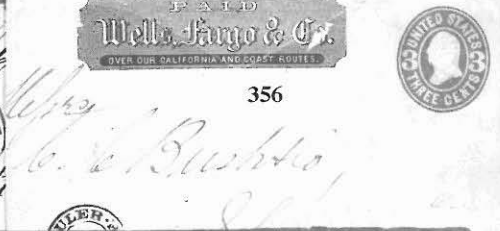 PAID
Wells, Fargo & Co.
OVER OUR CALIFORNIA AND COAST ROUTES.
UNITED STATES
3 3
THREE CENTS
356
Messrs
C. C. Bush & Co,
ULER